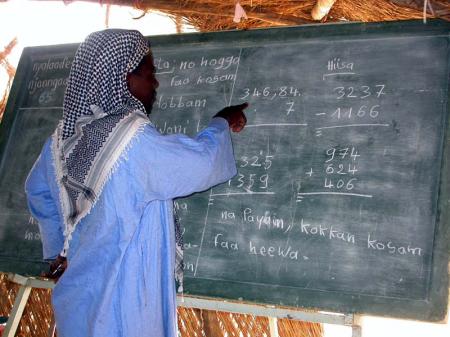 njalaade
njaangaa
65
ta; no hoggo
faa kosam
Hobbam
Woni
346,84.
7
325
1359
Hiisa
3237
- 1166
974
+ 624
406
na Payain, kokkan kosam
faa heewa.